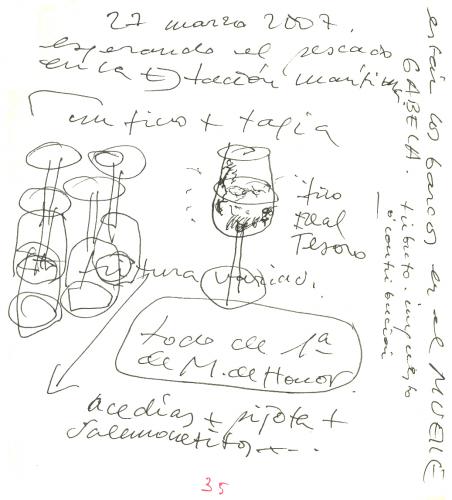 27 marzo 2007.
esperando el pescado
en la Estación marítima
un fino + tapia
fino
Real
Tesoro
fritura variada.
todo de 1ª
de M. de Honor
acedías + pijota +
Salmonetitos + ...
35
están los barcos en el MUELLE
GABELA. tributo, impuesto
o contribución